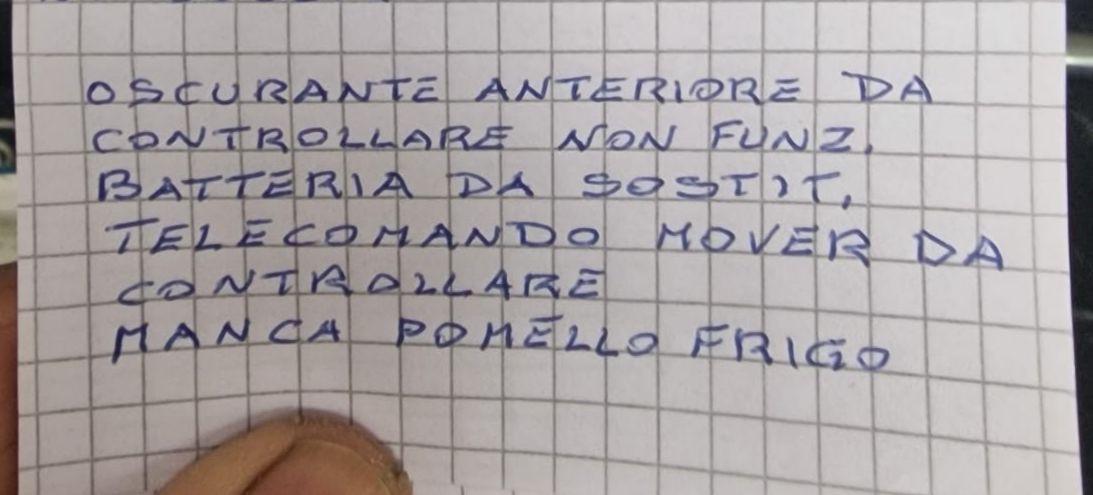 OSCURANTE ANTERIORE DA
CONTROLLARE NON FUNZ.
BATTERIA DA SOSTIT.
TELECOMANDO MOVER DA
CONTROLLARE
MANCA POMELLO FRIGO